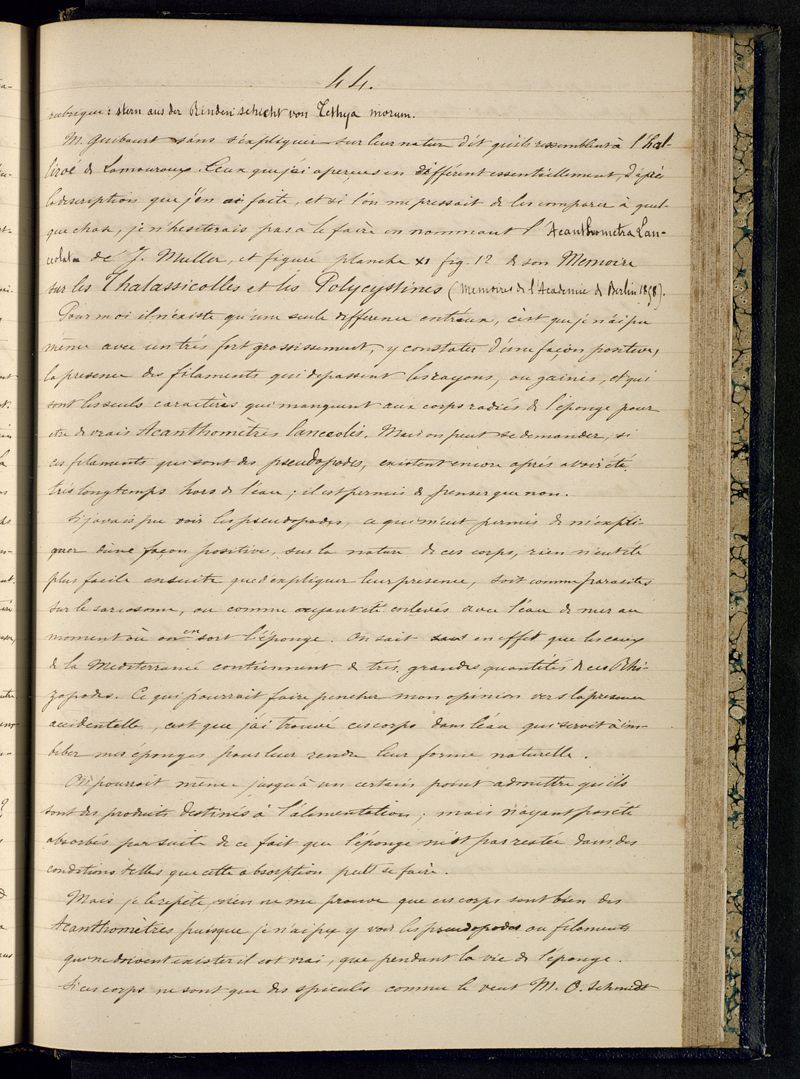 44.
rubrique: stern aus der Rindenschicht von Tethya morum.
M. Guibourt sans s'expliquer sur leur nature dit qu'ils ressemblent à l'hal-
liroé de Lamouroux. Ceux que j'ai aperçus en différent essentiellement, d'après
la description que j'en ai faite, et si l'on me pressait de les comparer à quel-
que chose, je n'hesiterais pas à le faire en nommant l'Acanthometra Lan-
ceolata de J. Muller, et figuré planche XI fig. 12 de son Memoire
sur les Thalassicolles et les Polycystines (Memoires de l'Academie de Berlin 1858).
Pour moi il n'éxiste qu'une seule difference entr'eux, c'est que je n'ai pu
même avec un trés fort grossissement, y constater d'une façon positive,
la presence des filaments qui depassent les rayons, ou gaines, et qui
sont les seuls caractères qui manquent aux corps radiés de l'éponge pour
être de vrais Acanthomètres lanceolés. Mais on peut se demander, si
ces filaments qui sont des pseudopodes, existent encore après avoir été
tres longtemps hors de l'eau; il est permis de penser que non.
Si j'avais pu voir les pseudopodes, ce qui m'eut permis de m'expli-
quer d'une façon positive, sur la nature de ces corps, rien n'eut été
plus facile ensuite que d'expliquer leur presence, soit comme parasites
sur le sarcosome, ou comme ayant été enlevés avec l'eau de mer au
moment où on en sort l'éponge. On sait en effet que les eaux
de la Mediterranée contiennent de très grandes quantités de ces Rhi-
zopodes. Ce qui pourrait faire pencher mon opinion vers la presence
accidentelle, c'est que j'ai trouvé ces corps dans l'eau qui servoit à im-
biber mes éponges pour leur rendre leur forme naturelle.
On pourroit même jusqu'à un certain point admettre qu'ils
sont des produits destinés à l'alimentation; mais n'ayant pas été
absorbés par suite de ce fait que l'éponge n'est pas restée dans des
conditions telles que cette absorption peut se faire.
Mais je le repète, rien ne me prouve que ces corps sont bien des
Acanthomètres puisque je n'ai pu y voir les pseudopodes ou filaments
qui ne doivent exister il est vrai, que pendant la vie de l'éponge.
Si ces corps ne sont que des spicules comme le veut M. O. Schmidt